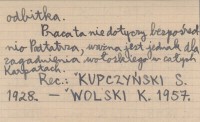 odbitka.
Praca ta nie dotyczy bezpośred
nio Podtatrza, ważna jest jednak dla
zagadnienia wołoskiego w całych
Karpatach.
Rec.: "KUPCZYŃSKI S.
1928. — "WOLSKI K. 1957.